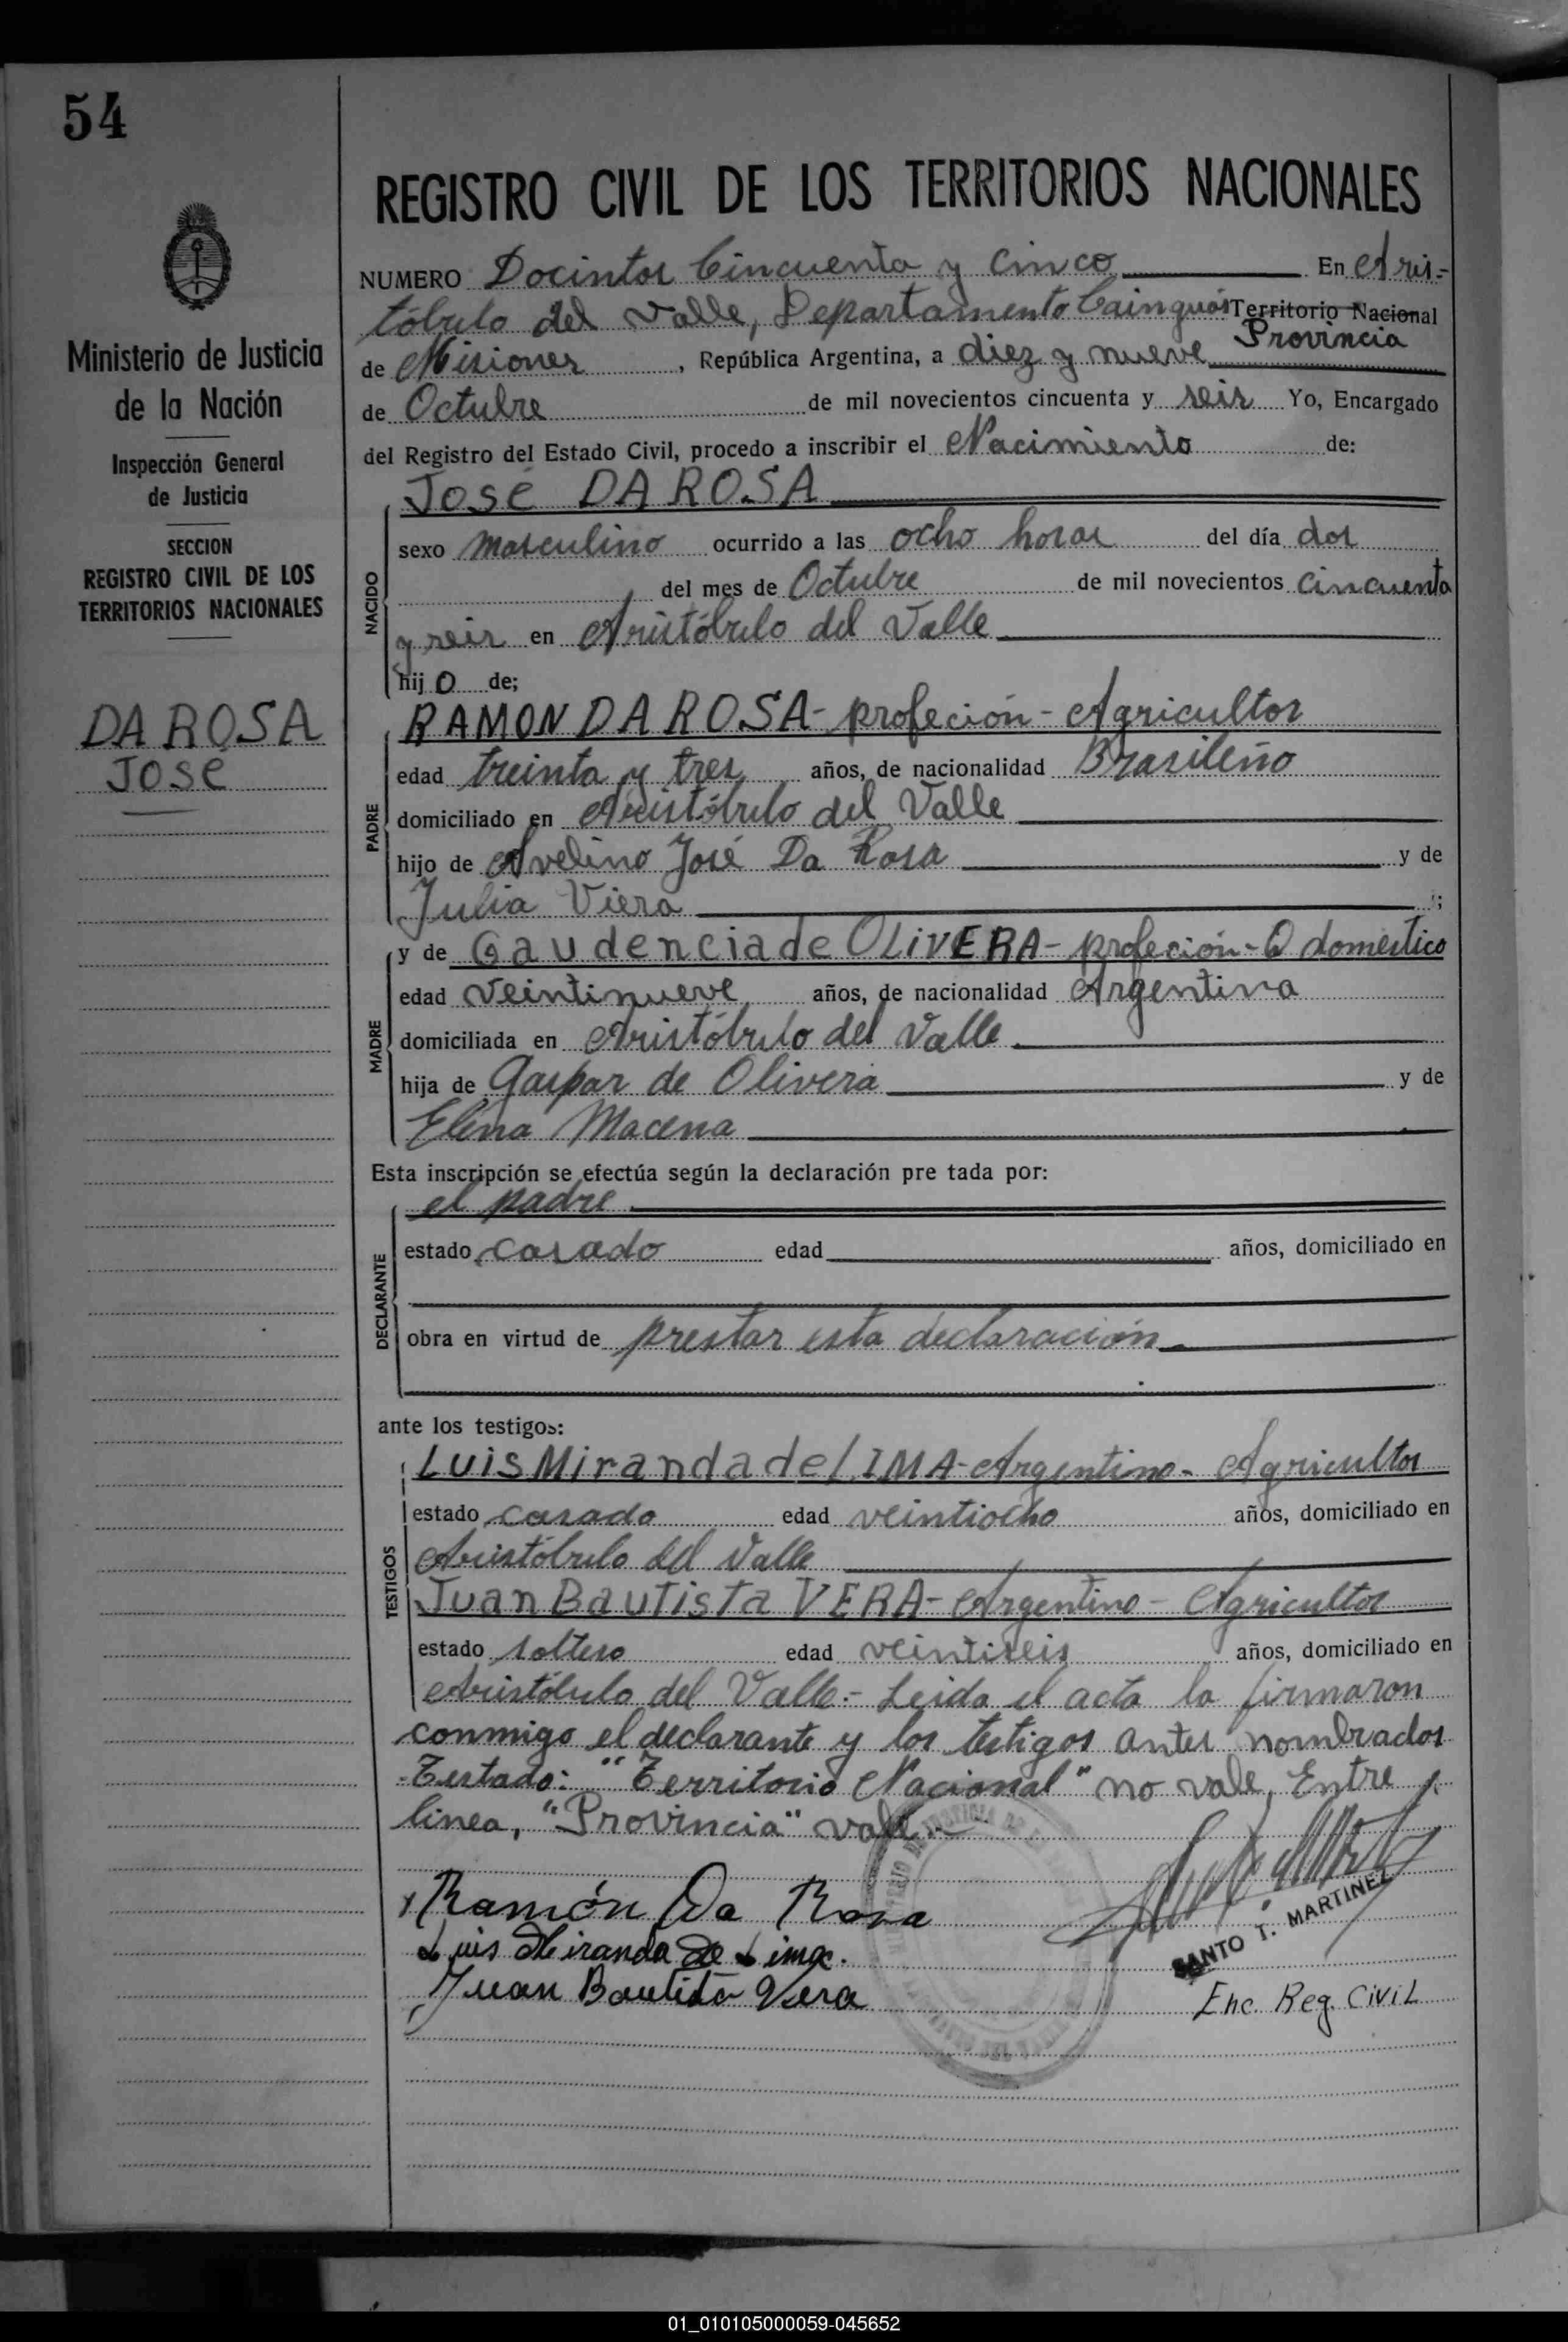 54
REGISTRO CIVIL DE LOS TERRITORIOS NACIONALES
Ministerio de Justicia
de la Nación
Inspección General
de Justicia
SECCION
REGISTRO CIVIL DE LOS
TERRITORIOS NACIONALES
DA ROSA
JOSÉ
NUMERO Docintos Cincuenta y cinco En Aris-
tóbulo del Valle, Departamento Cainguás Territorio Nacional
Provincia
de Misiones, República Argentina, a diez y nueve
de Octubre de mil novecientos cincuenta y seis Yo, Encargado
del Registro del Estado Civil, procedo a inscribir el Nacimiento de:
NACIDO
JOSÉ DA ROSA
sexo masculino ocurrido a las ocho horas del día dos
del mes de Octubre de mil novecientos cincuenta
y seis en Aristóbulo del Valle
hijo de;
PADRE
RAMON DA ROSA- profeción - Agricultor
edad treinta y tres años, de nacionalidad Brasileño
domiciliado en Aristóbulo del Valle
hijo de Avelino José Da Rosa y de
Julia Viera ;
MADRE
y de Gaudencia de OLIVERA- profeción - Q doméstico
edad veintinueve años, de nacionalidad Argentina
domiciliada en Aristóbulo del Valle
hija de Gaspar de Olivera y de
Elena Macena
Esta inscripción se efectúa según la declaración pre tada por:
DECLARANTE
el padre
estado casado edad años, domiciliado en
obra en virtud de prestar esta declaración
ante los testigos:
TESTIGOS
Luis Miranda de LIMA- Argentino- Agricultor
estado casado edad veintiocho años, domiciliado en
Aristóbulo del Valle
Juan Bautista VERA- Argentino - Agricultor
estado soltero edad veintiseis años, domiciliado en
Aristóbulo del Valle.- Leida el acta la firmaron
conmigo el declarante y los testigos antes nombrados
Testado: "Territorio Nacional" no vale, Entre
linea, "Provincia" vale.-
Ramón Da Rosa
Luis Miranda De Lima.
Juan Bautista Vera
SANTO T. MARTINEZ
Enc. Reg. CiviL
01_010105000059-045652